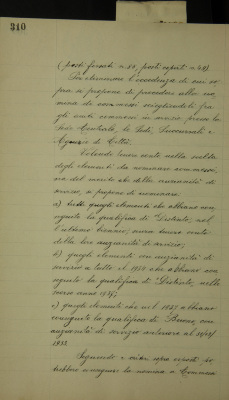 310
(posti fissati n. 80, posti coperti n. 48).
Per eliminare l'eccedenza di cui so-
pra si propone di procedere alla no-
mina di commessi scegliendoli fra
gli
commessi in
presso la
Sede Centrale, le Sedi, Succursali e
Agenzie di Città.
Volendo tener conto nella scelta
degli elementi da nominare commessi,
sia del merito che della anzianità di
servizio, si propone di nominare:
a) tutti quegli elementi che abbiano con-
seguito la qualifica di "Distinto" nel
l'ultimo
senza tener conto
della loro anzianità di servizio;
b) quegli elementi con anzianità di
servizio a tutto il
che abbiano con-
seguito la qualifica di Distinto, nello
scorso anno
c) quegli elementi che nel
abbiano
conseguito la qualifica di Buono, con
anzianità di servizio anteriore al
Seguendo i criteri sopra esposti po-
trebbero conseguire la nomina a Commessi